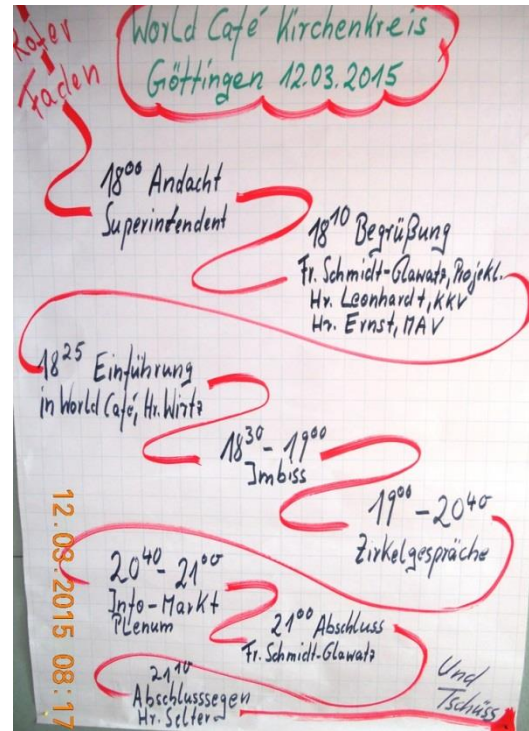 Roter
Faden
World Café Kirchenkreis
Göttingen 12.03.2015
18⁰⁰ Andacht
Superintendent
18¹⁰ Begrüßung
Fr. Schmidt-Glawatz, Projekl.
Hr. Leonhardt, KKV
Hr. Ernst, MAV
18²⁵ Einführung
in World Café, Hr. Wirtz
18³⁰ - 19⁰⁰
Imbiss
19⁰⁰ - 20⁴⁰
Zirkelgespräche
20⁴⁰ - 21⁰⁰
Info-Markt
Plenum
21⁰⁰ Abschluss
Fr. Schmidt-Glawatz
21¹⁰
Abschlusssegen
Hr. Selter
Und
Tschüss
12.03.2015 08:17